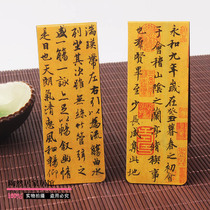 永和九年歲在癸丑暮春之初會
于會稽山陰之蘭亭脩禊事
也羣賢畢至少長咸集此地
湍暎帶左右引以為流觴曲水
列坐其次雖無絲竹管弦之
盛一觴一詠亦足以暢敘幽情
是日也天朗氣清惠風和暢仰